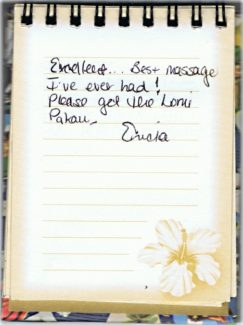 Excellent... Best massage
I've ever had!
Please get the Lomi
Pakau.